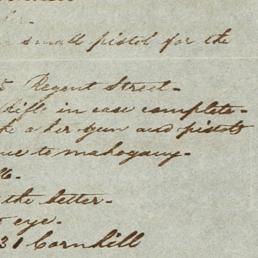 small pistol for the
5 Regent Street.
Rifle in case complete.
gun and pistols
to mahogany.
6.
the better.
eye.
31 Cornhill